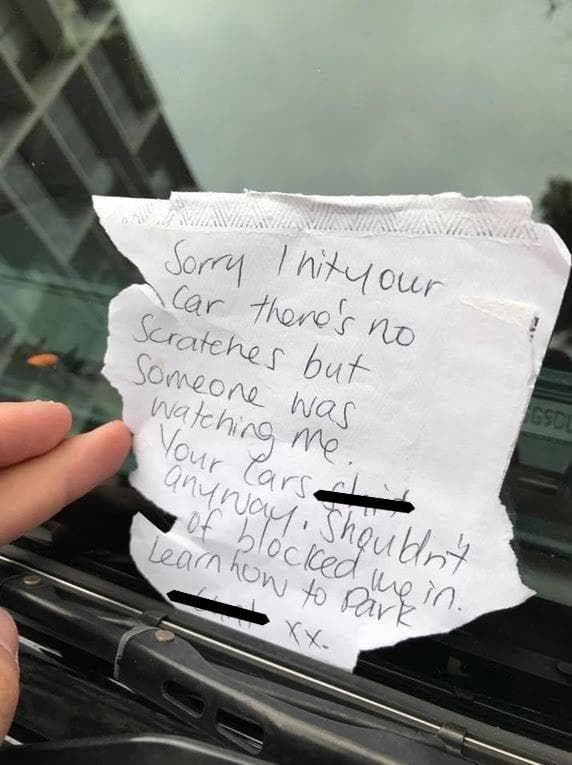 Sorry I hit your
car there's no
Scratches but
Someone was
watching me.
Your cars
anyway. Shouldn't
of blocked me in.
Learn how to Park
xx.